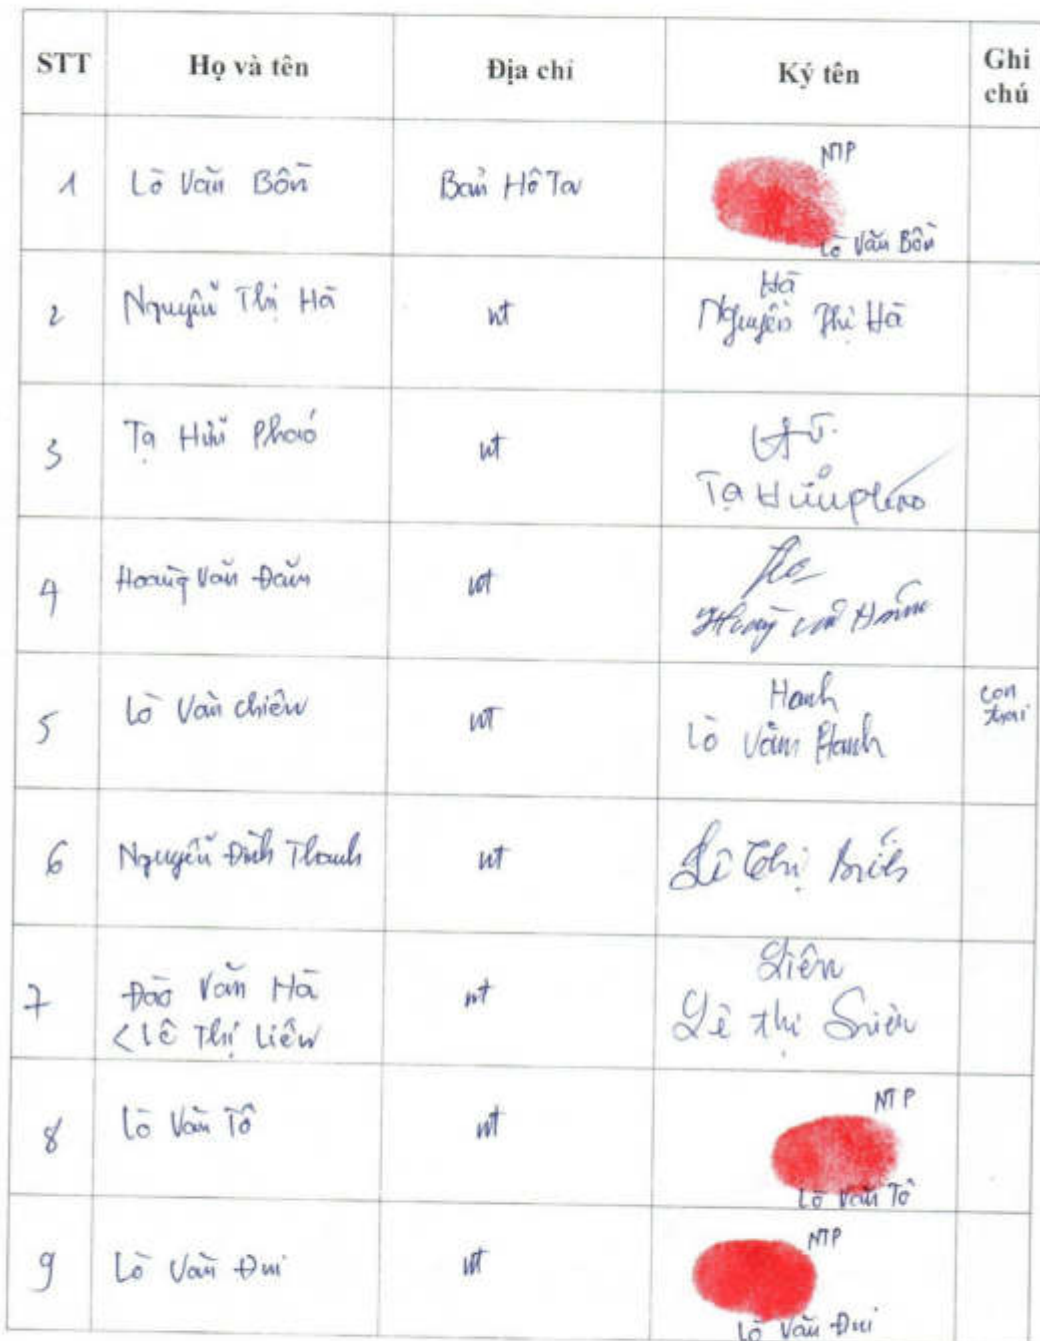 STT Họ và tên Địa chỉ Ký tên Ghi chú
1 Lò Văn Bôn Bản Hô Ta NTP
Lò Văn Bôn
2 Nguyễn Thị Hà nt Hà
Nguyễn Thị Hà
3 Tạ Hữu Pháo nt
Tạ Hữu Pháo
4 Hoàng Văn nt
Hoàng văn
5 Lò Văn Chiêu nt Hanh con trai
Lò Văn Hanh
6 Nguyễn Đình Thanh nt Lê Thị
7 Đào Văn Hà nt Liên
<Lê Thị Liên Lê thị Liên
8 Lò Văn Tô nt NTP
Lò Văn Tô
9 Lò Văn Đui nt NTP
Lò Văn Đui